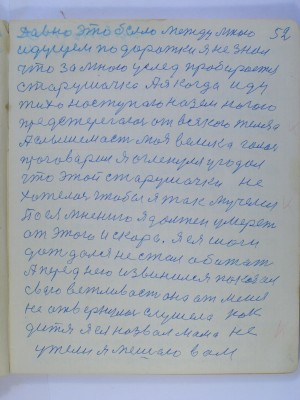 давно это было между мною 52
идущем по дорожки я не знал
что за мною услед пробирается
старушачка А я когда иду
тихо наступаю на зем ногою
предстерегаюс от всякого
А слышемаст моя велика голос
проговарил я огленулся угодал
что этой старушачки не
хотелос чтобы я так мучелся
По ея мнению я должен умереть
от этого и скоро. я ея мыслi
дождался не стал обижат
А перед нею извинился показал
свою вежливаст она от меня
не отвернулас слушела как
дитя я ея назвал мама не
ужели я мешаю вам